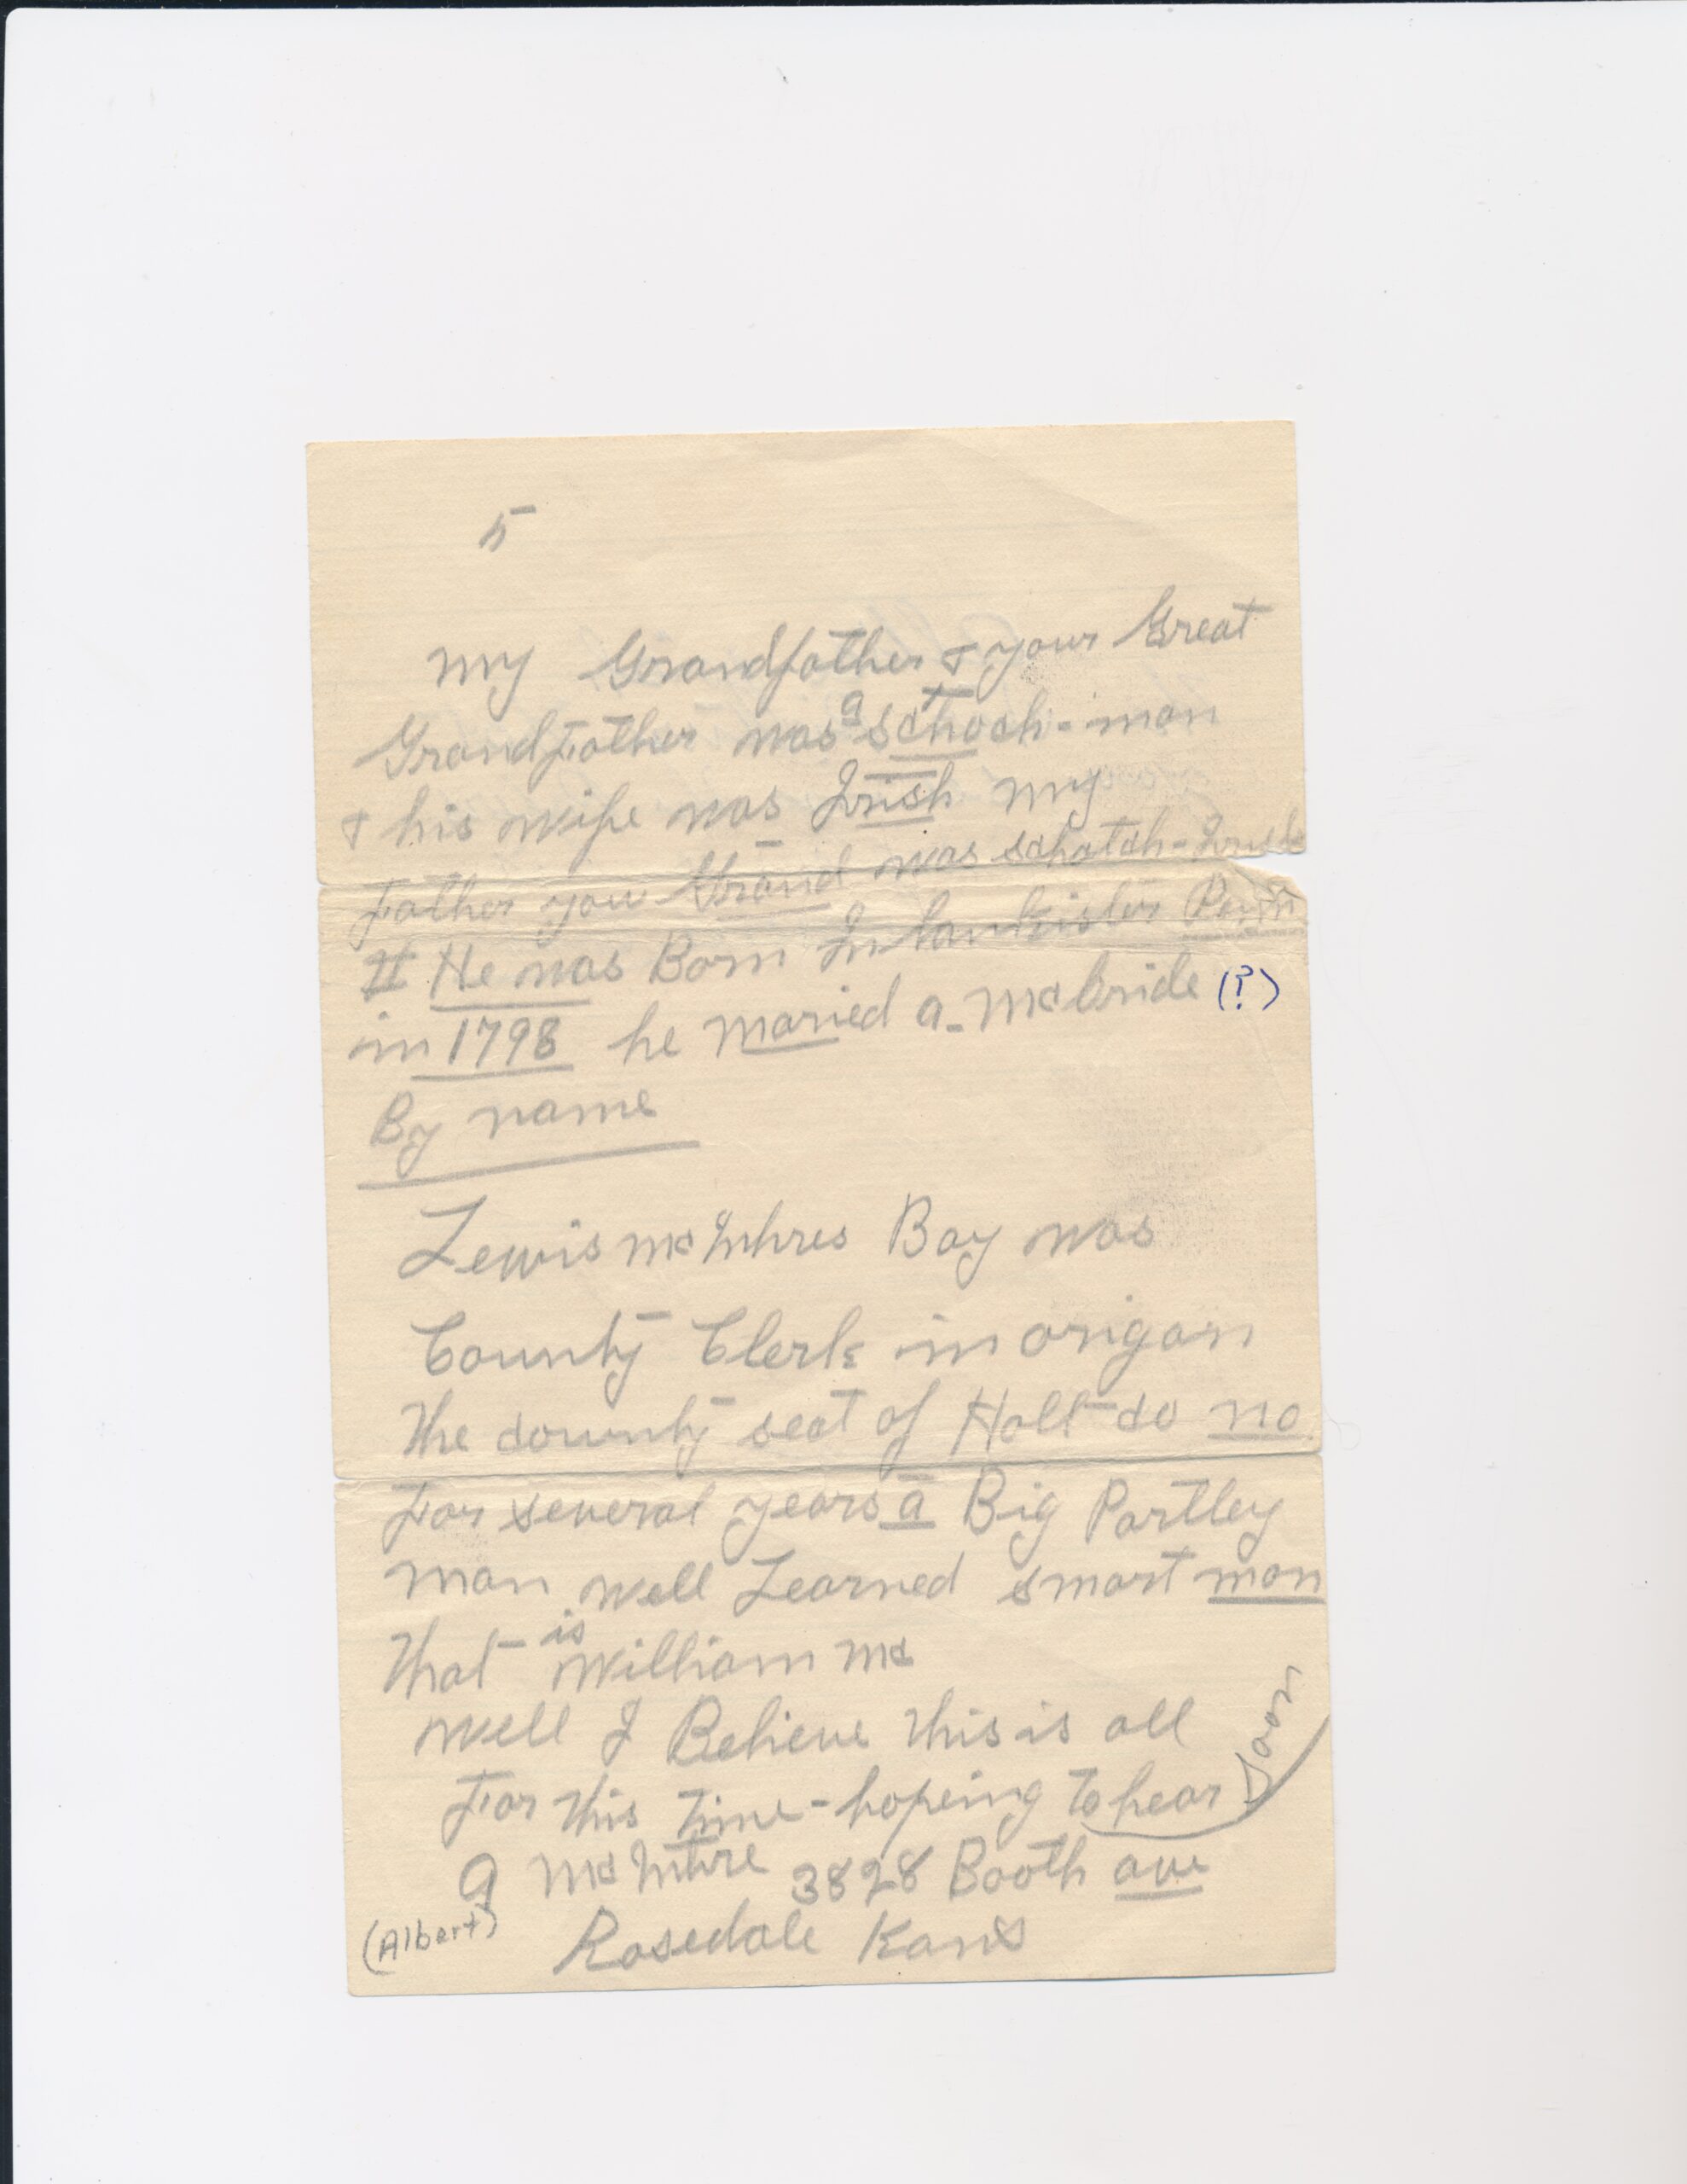 5
my Grandfather & your Great
Grandfather was a schoch-man
& his wife was Irish my
Father your Grand was schotch-Irish
He was Born In Lankister Penn
in 1798 he maried a- Mcbride (?)
By name
Lewis McIntires Boy was
County Clerk in origan
the county seat of Holt co Mo
For several years a Big Portley
man well Learned smart man
that is William Mc
well I Believe this is all
For this time - hopeing to hear soon
A McIntire 3828 Booth ave
(Albert)
Rosedale Kans